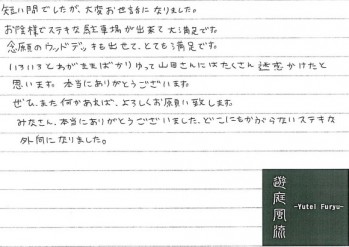 短い間でしたが、大変お世話になりました。
お陰様でステキな駐車場が出来て大満足です。
念願のウッドデッキも出せて、とても満足です。
いろいろとわがままばかりゆって山田さんにはたくさん迷惑かけたと
思います。本当にありがとうございます。
ぜひ、また何かあれば、よろしくお願い致します。
みなさん、本当にありがとうございました。どこにもかがらないステキな
外何になりました。
遊庭風流
-Yutei Furyu-